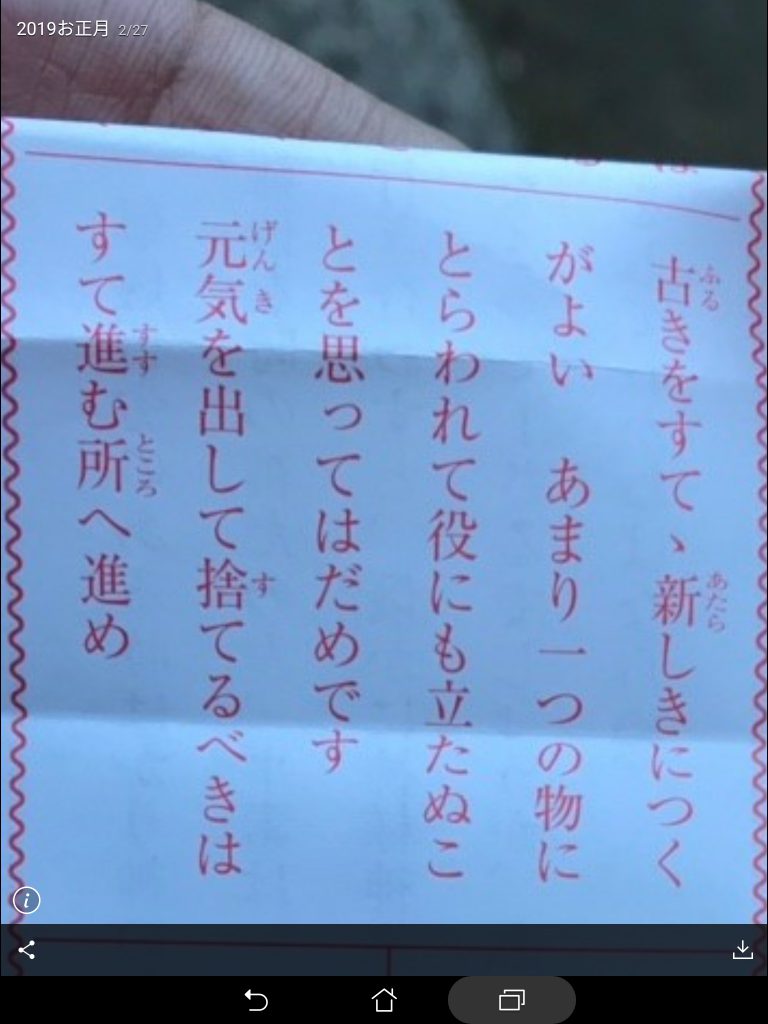 2019お正月 2/27
古きをすてゝ新しきにつく
がよい　あまり一つの物に
とらわれて役にも立たぬこ
とを思ってはだめです
元気を出して捨てるべきは
すて進む所へ進め
ふる
あたら
げんき
す
すす
ところ